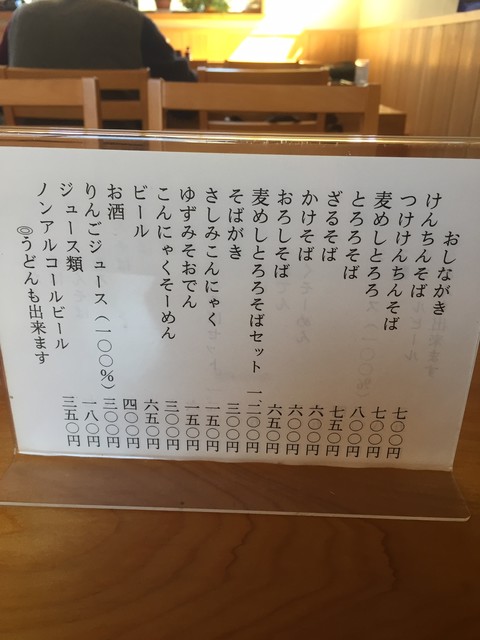 おしながき
けんちんそば 七〇〇円
つけけんちんそば 七〇〇円
麦めしとろろ 八〇〇円
とろろそば 七五〇円
ざるそば 六〇〇円
かけそば 六〇〇円
おろしそば 六五〇円
麦めしとろろそばセット 一、二〇〇円
そばがき 三〇〇円
さしみこんにゃく 一五〇円
ゆずみそおでん 一五〇円
こんにゃくそーめん 三〇〇円
ビール 六五〇円
お酒 四〇〇円
りんごジュース（一〇〇%） 三〇〇円
ジュース類 一八〇円
ノンアルコールビール 三五〇円
◎うどんも出来ます